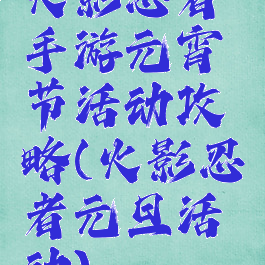 火影忍者
手游元宵
节活动攻
略(火影忍
者元旦活
动)